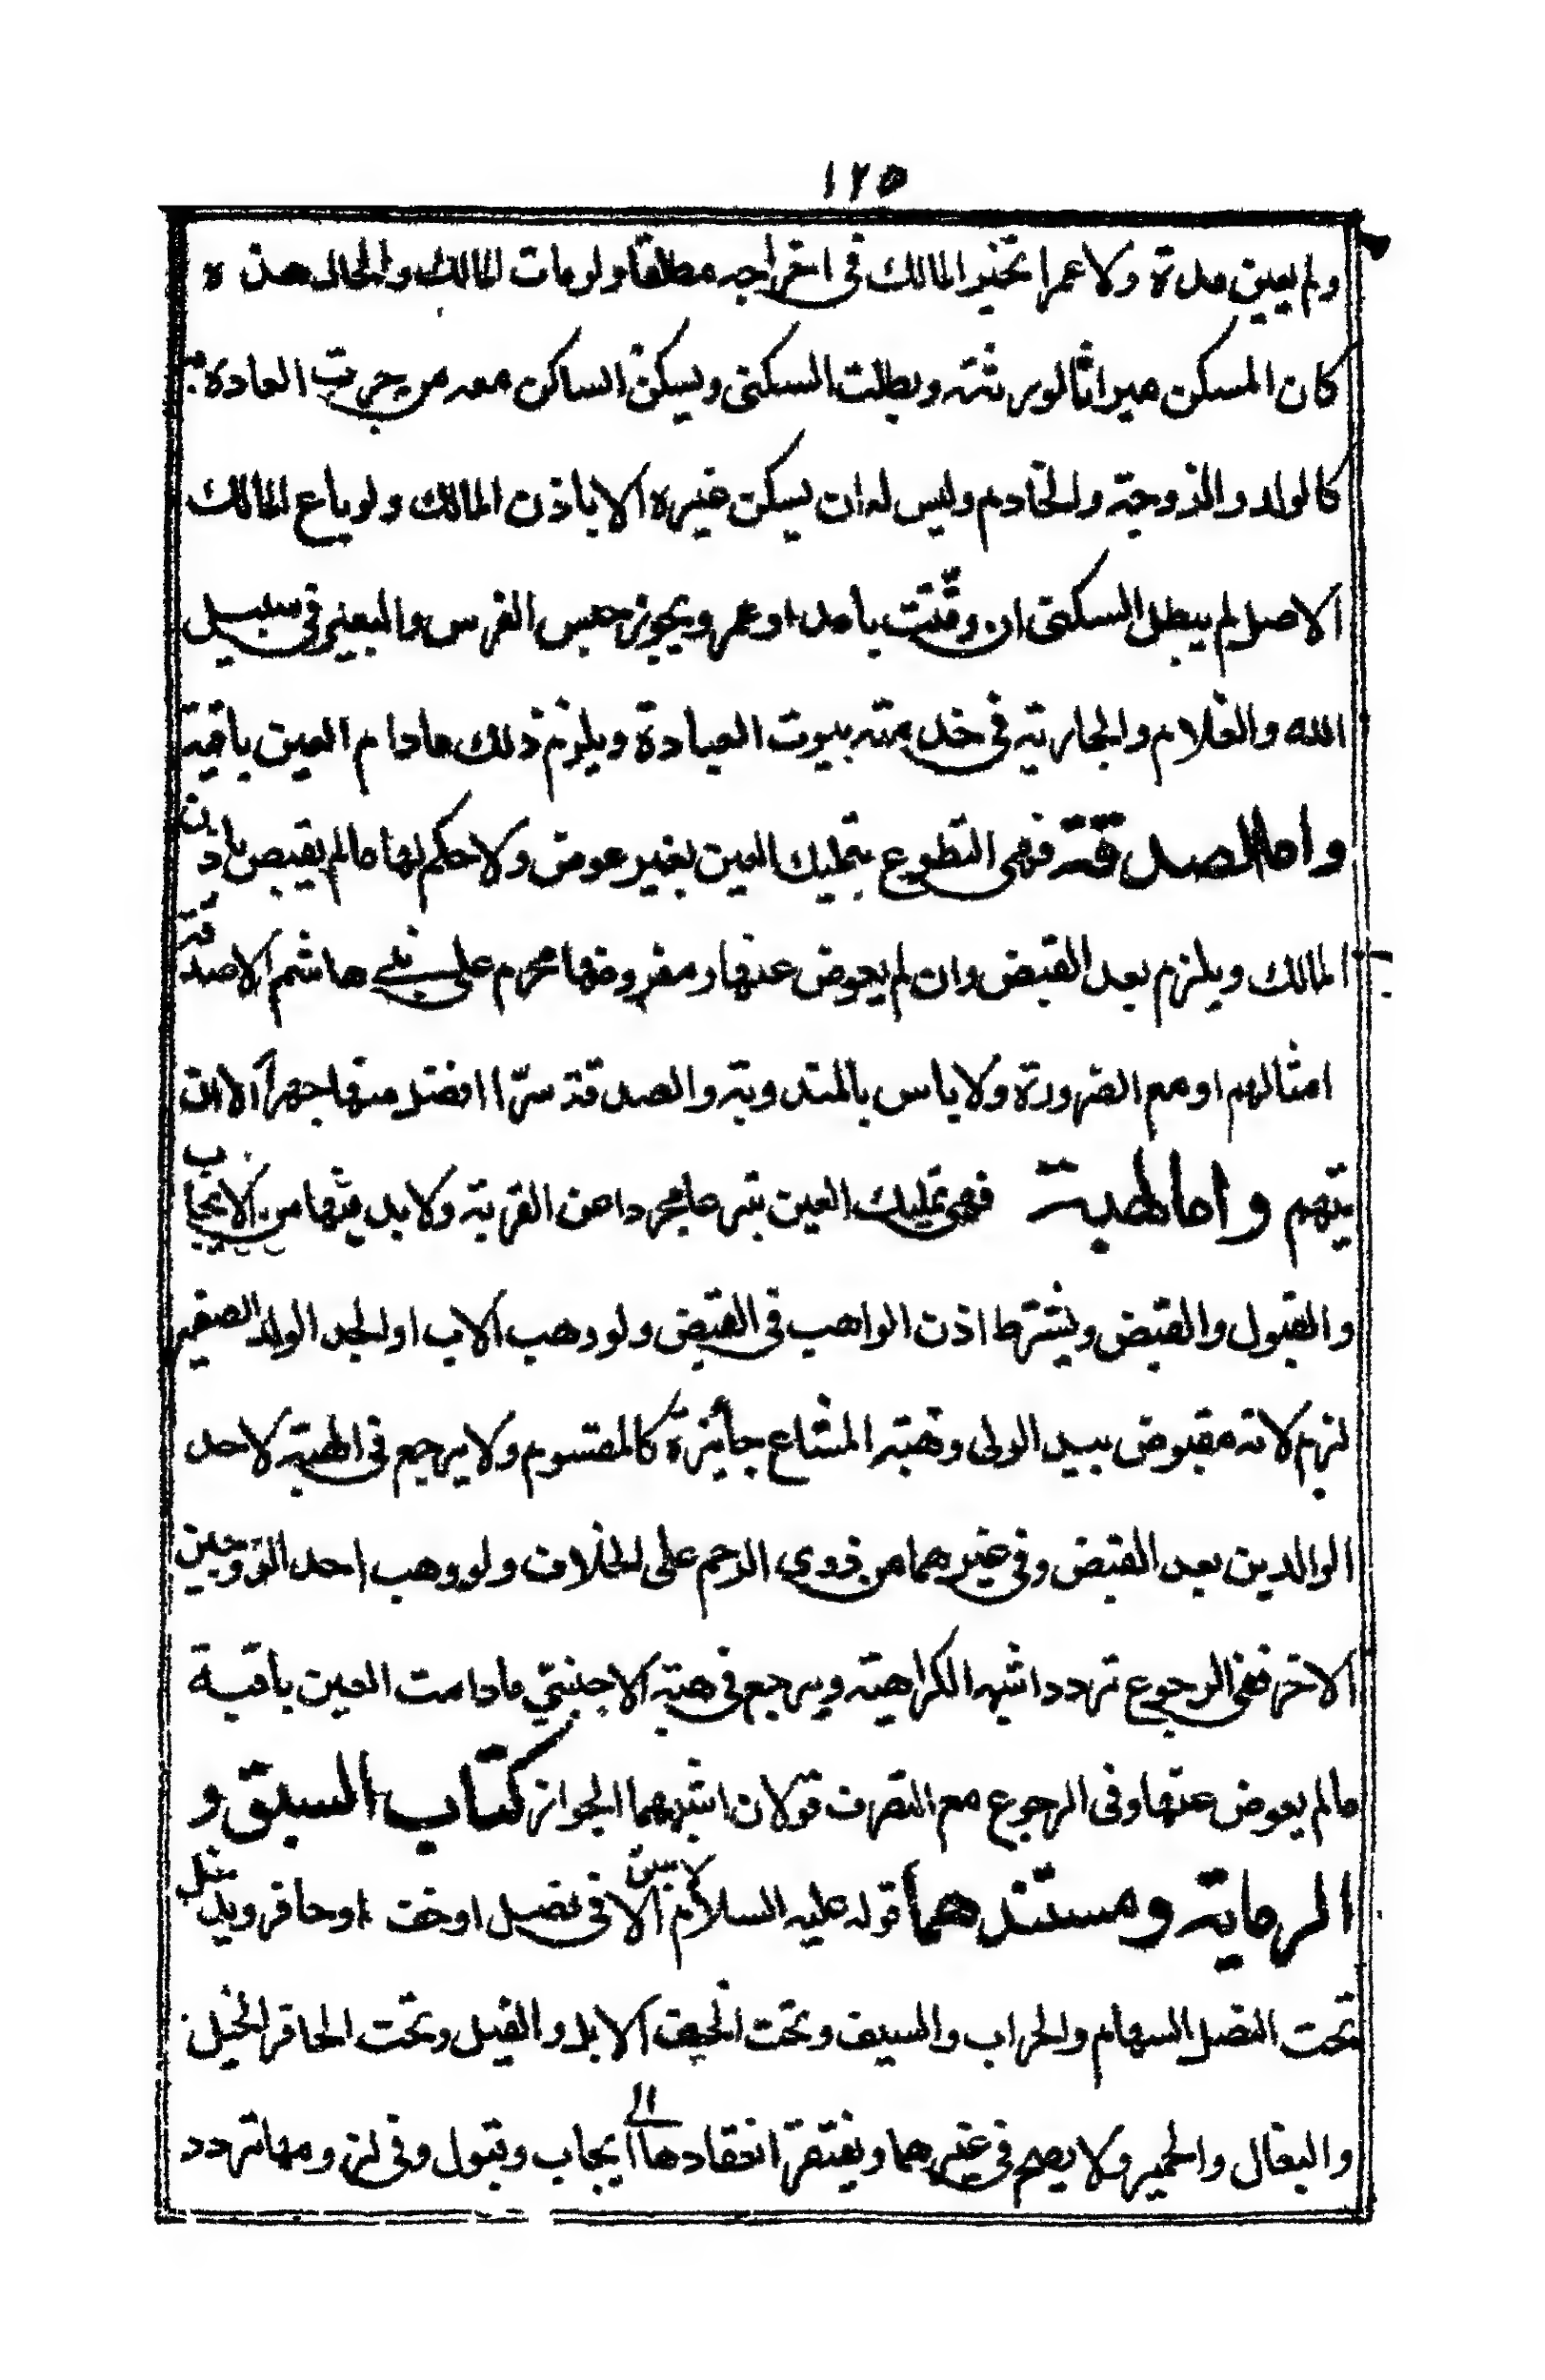 ١٢٥
ولم يعين مدة ولا عمرا تخير المالك في اخراجه مطلقا ولو مات المالك والحال هذه
كان المسكن ميراثا لورثته وبطلت السكنى ويسكن الساكن معه من جرت العادة به
كالولد والزوجة والخادم وليس له ان يسكن غيره الا باذن المالك ولو باع المالك
الاصل لم يبطل السكنى ان وقّتت بامد او عمر ويجوز حبس الفرس والبعير في سبيل
الله والغلام والجارية في خدمته بيوت العبادة ويلزم ذلك مادام العين باقية
واما الصدقة فهي التطوع بتمليك العين بغير عوض ولا حكم لها مالم يقبض باذن
المالك ويلزم بعد القبض وان لم يعوض عنها ومفروضها محرم على بني هاشم الا صدقة
امثالهم او مع الضرورة ولا باس بالمندوبة والصدقة سرّا افضل منها جهرا الا ان
يتهم واما الهبة فهي تمليك العين تبرعا مجردا عن القربة ولا بد فيها من الايجاب
والقبول والقبض ويشترط اذن الواهب في القبض ولو وهب الاب او الجد الولد الصغير
لزم لانه مقبوض بيد الولى وهبة المشاع جائزة كالمقسوم ولا يرجع في الهبة لاحد
الوالدين بعد القبض وفي غيرهما من ذوى الرحم على الخلاف ولو وهب احد الزوجين
الاخر ففى الرجوع تردد اشبهه الكراهية ويرجع في هبة الاجنبي مادامت العين باقية
مالم يعوض عنها وفى الرجوع مع التصرف قولان اشبههما الجواز كتاب السبق و
الرماية ومستندهما قوله عليه السلام لا سبق الا في نصل او خف او حافر ويدخل
تحت النصل السهام والحراب والسيف وتحت الخف الابل والفيل وتحت الحافر الخيل
والبغال والحمير ولا يصح في غيرهما ويفتقر انعقادها الى ايجاب وقبول وفى لزومها تردد